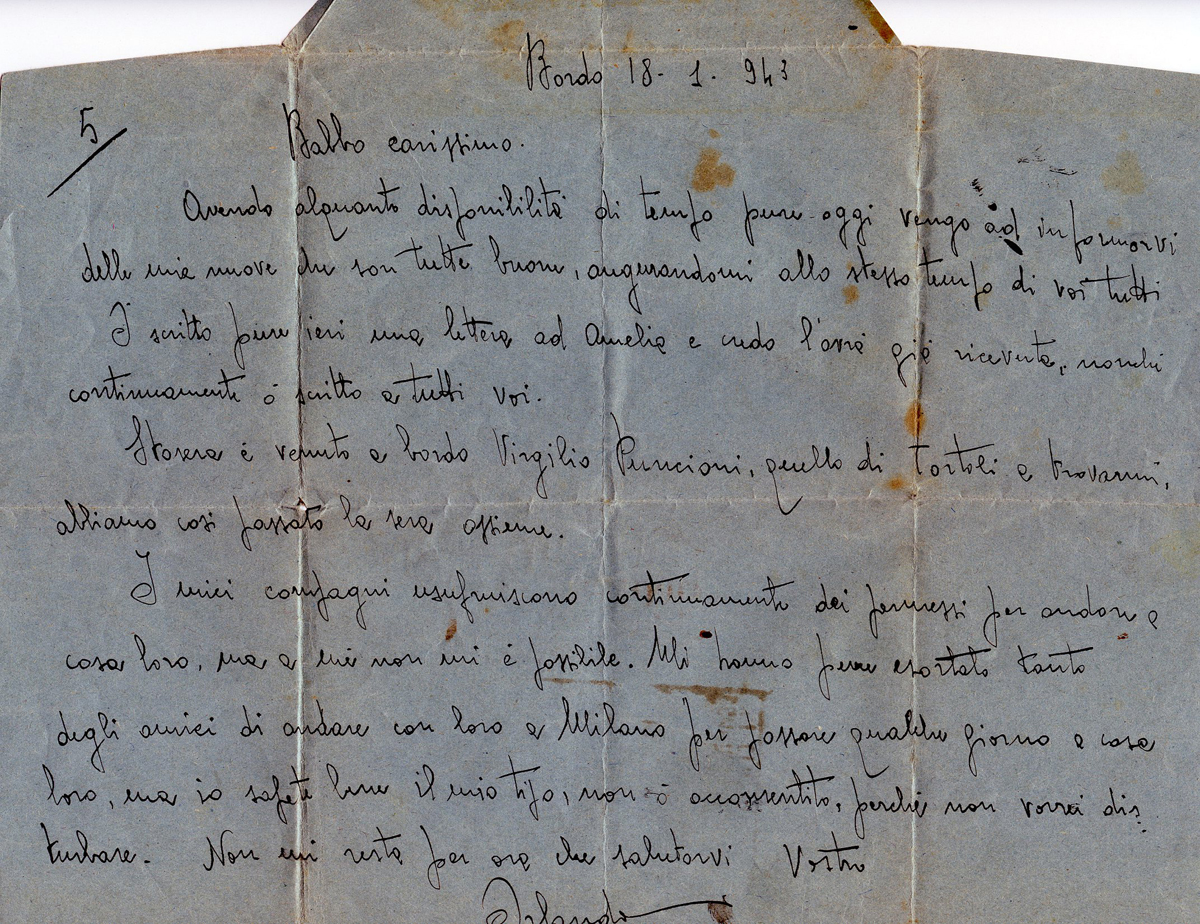 Bordo 18-1-943
5
Babbo carissimo.
Avendo alquanto disponibilità di tempo pure oggi vengo ad informarvi
delle mie nuove che son tutte buone, augurandomi allo stesso tempo di voi tutti
Ò scritto pure ieri una lettera ad Amelia e credo l'avrà già ricevuta, nonchè
continuamente ò scritto a tutti voi.
Stasera è venuto a bordo Virgilio Puncioni, quello di Tortoli a trovarmi,
abbiamo così passato la sera assieme.
I miei compagni usufruiscono continuamente dei permessi per andare a
casa loro, ma a me non mi è possibile. Mi hanno pure esortato tanto
degli amici di andare con loro a Milano per passare qualche giorno a casa
loro, ma io sapete bene il mio tipo, non ò acconsentito, perchè non vorrei dis-
turbare. Non mi resta per ora che salutarvi Vostro
Orlando